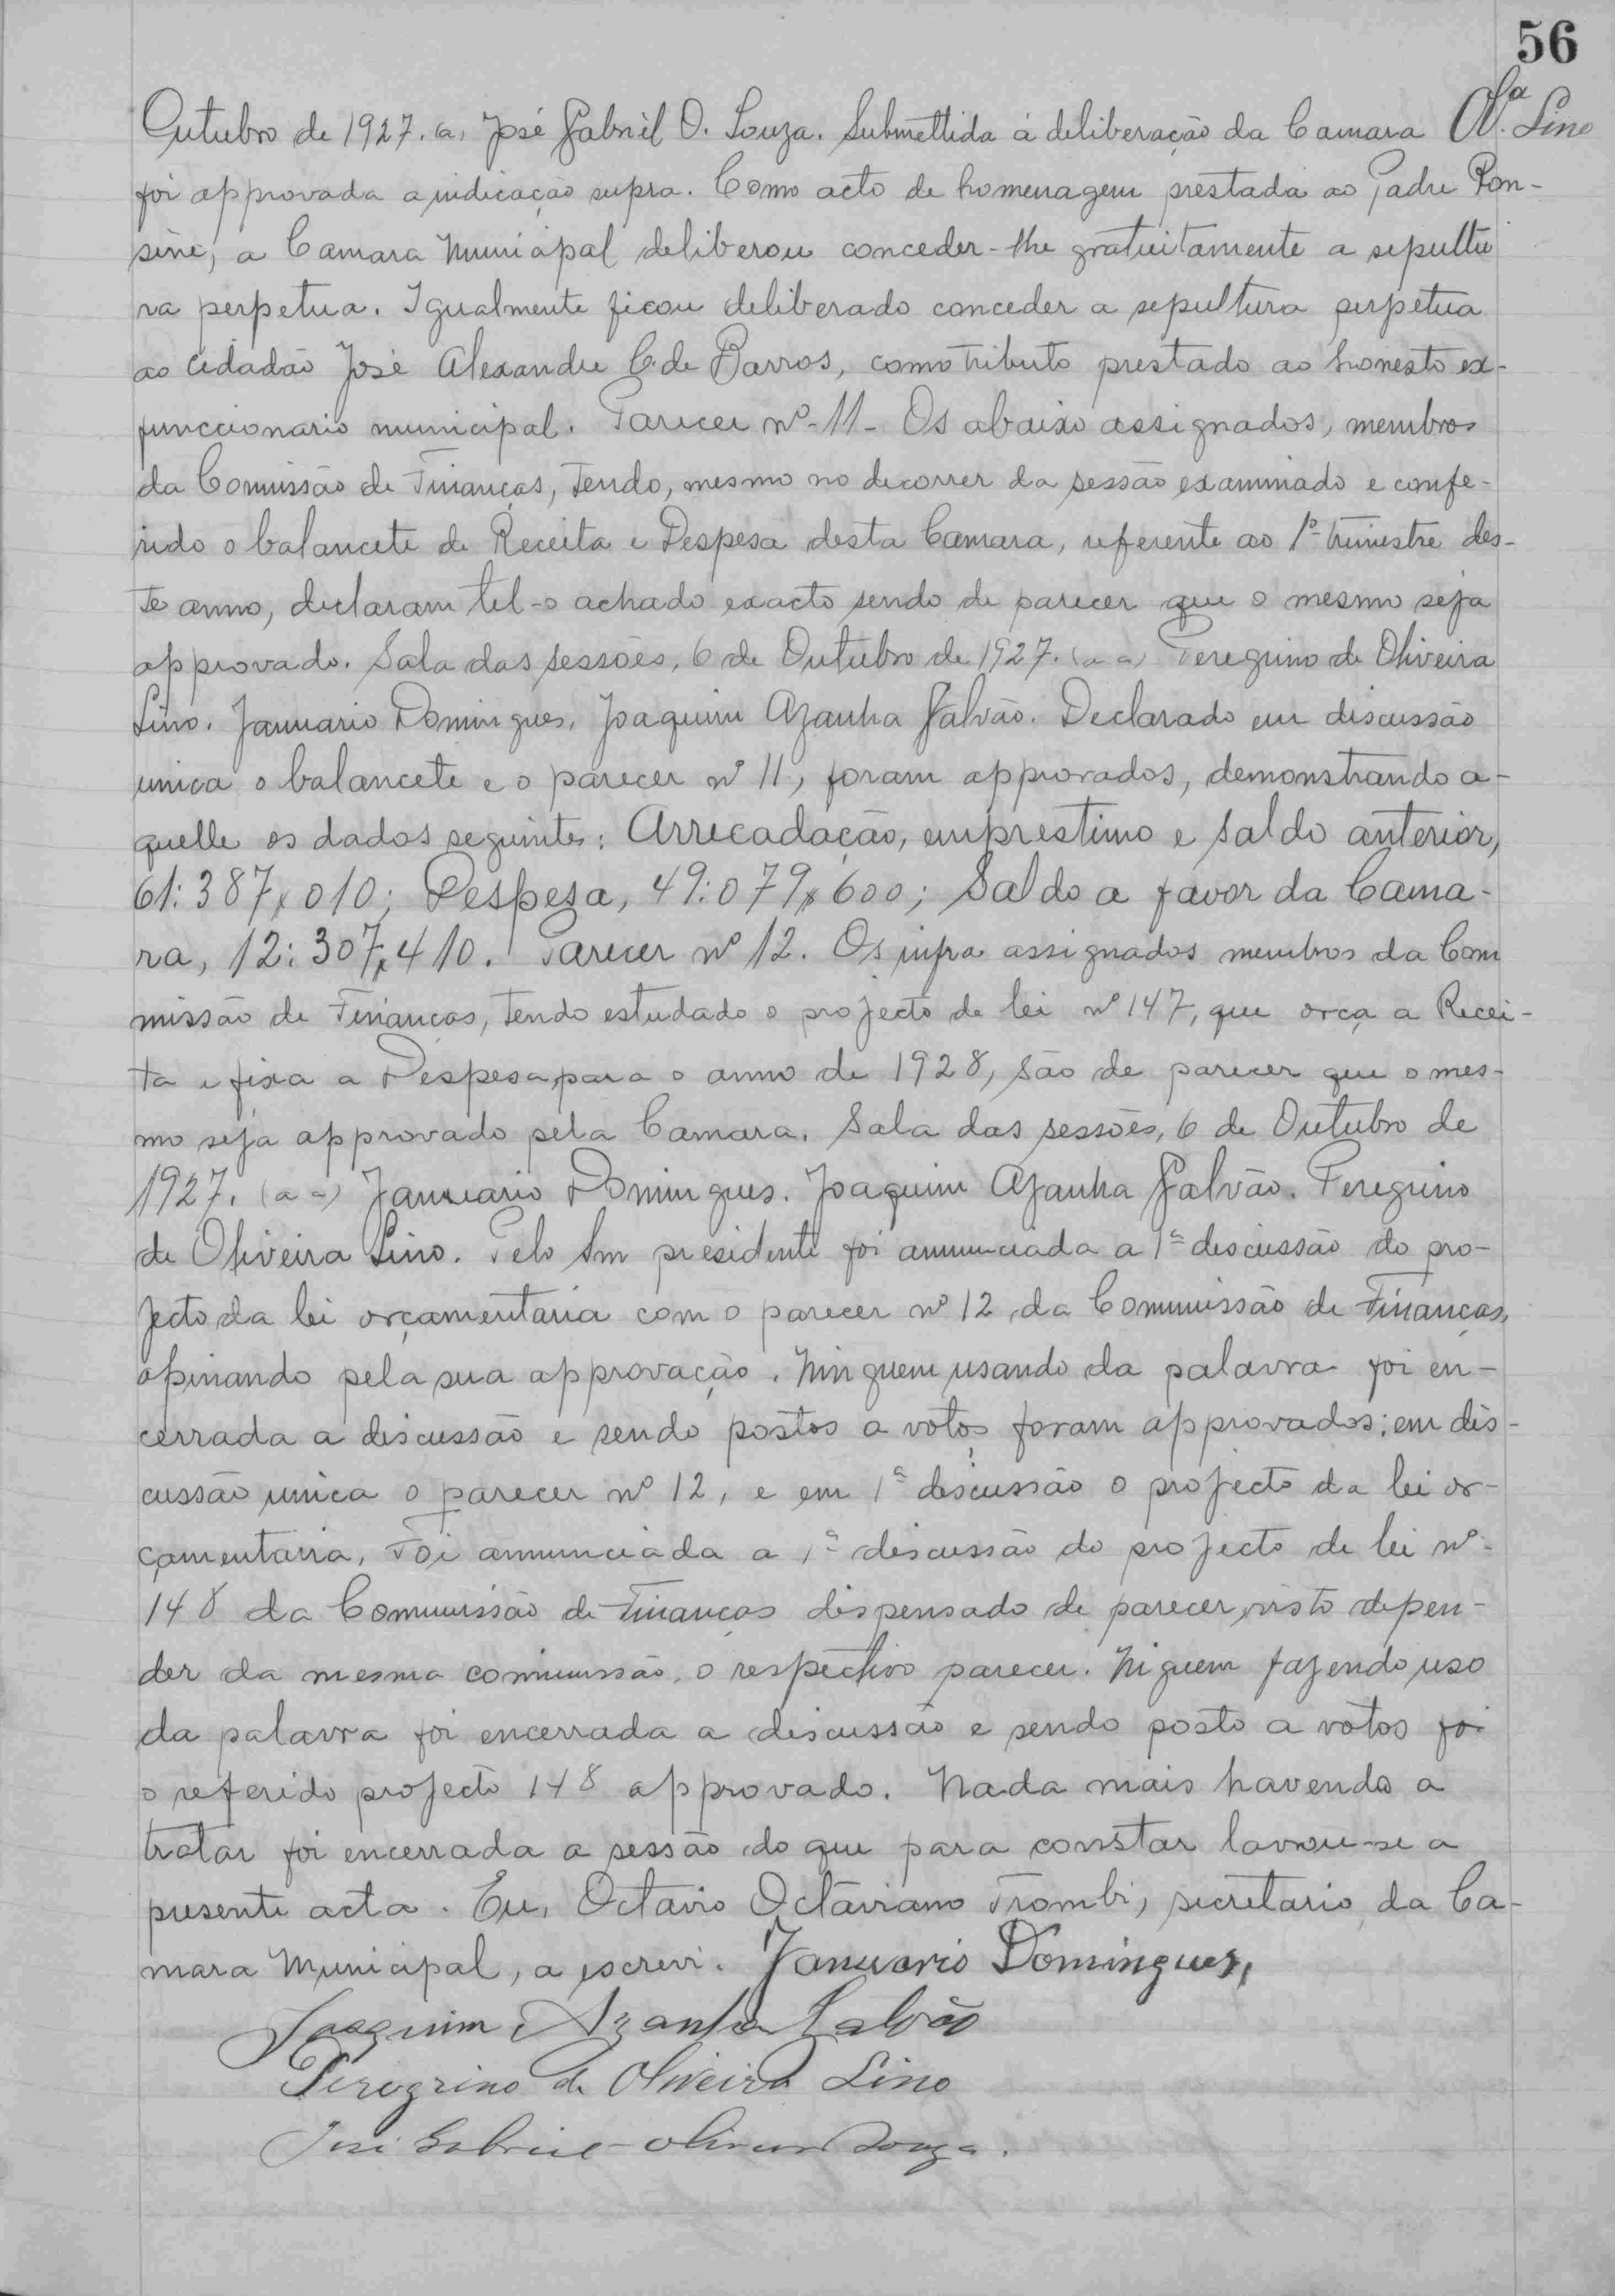 56
Outubro de 1927. (a) José Gabriel O. Souza. Submettida á deliberação da Camara Olva. Lino
foi approvada a indicação supra. Como acto de homenagem prestada ao Padre Pon-
sine, a Camara Municipal deliberou conceder-lhe gratuitamente a sepultu
ra perpetua. Igualmente ficou deliberado conceder a sepultura perpetua
ao cidadão José Alexandre C. de Barros, como tributo prestado ao honesto ex-
funccionario municipal. Parecer nº 11 - Os abaixo assignados, membros
da Comissão de Finanças, tendo, mesmo no decorrer da sessão examinado e confe-
rido o balancete de Receita e Despesa desta Camara, referente ao 1º trimestre des-
te anno, declaram tel-o achado exacto sendo de parecer que o mesmo seja
approvado. Sala das sessões, 6 de Outubro de 1927. (a a) Peregrino de Oliveira
Lino. Januario Domingues. Joaquim Azanha Galvão. Declarado em discussão
unica o balancete e o parecer nº 11, foram approvados, demonstrando a-
quelle os dados seguintes: Arrecadação, emprestimo e saldo anterior,
61:387,010; Despesa, 49:079$600; Saldo a favor da Cama-
ra, 12:307,410. Parecer nº 12. Os infra assignados membros da Com
missão de Finanças, tendo estudado o projecto de lei nº 147, que orça a Recei-
ta e fixa a Despesa para o anno de 1928, são de parecer que o mes-
mo seja approvado pela Camara. Sala das sessões, 6 de Outubro de
1927. (a a) Januario Domingues. Joaquim Azanha Galvão. Peregrino
de Oliveira Lino. Pelo Snr presidente foi annunciada a 1ª discussão do pro-
jecto da lei orçamentaria com o parecer nº 12 da Commissão de Finanças,
opinando pela sua approvação. Ninguem usando da palavra foi en-
cerrada a discussão e sendo postos a votos foram approvados: em dis-
cussão unica o parecer nº 12, e em 1ª discussão o projecto da lei or-
çamentaria. Foi annunciada a 1ª discussão do projecto de lei nº
148 da Commissão de Finanças dispensado de parecer, visto depen-
der da mesma commissão, o respectivo parecer. Niguem fazendo uso
da palavra foi encerrada a discussão e sendo posto a votos foi
o referido projecto 148 approvado. Nada mais havendo a
tratar foi encerrada a sessão do que para constar lavrou-se a
presente acta. Eu, Octavio Octaviano Trombi, secretario da Ca-
mara Municipal, a escrevi. Januario Domingues,
Joaquim Azanha Galvão
Peregrino de Oliveira Lino
José Gabriel Oliveira Souza.